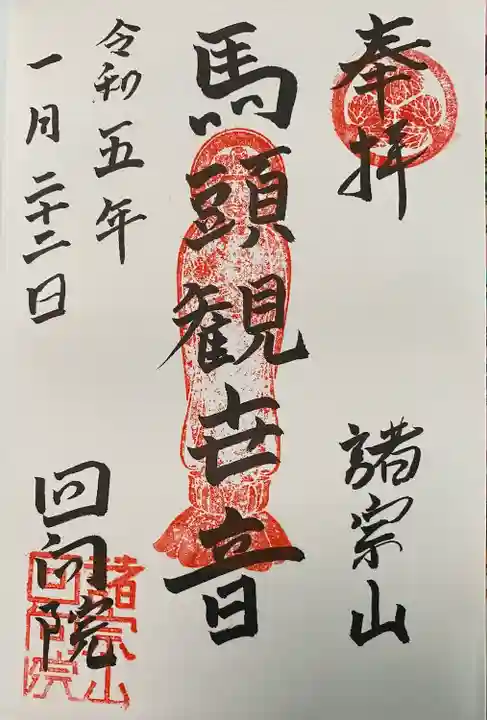 奉拝
諸宗山
馬頭観世音
令和五年
一月二十二日
回向院
諸宗山
回向院